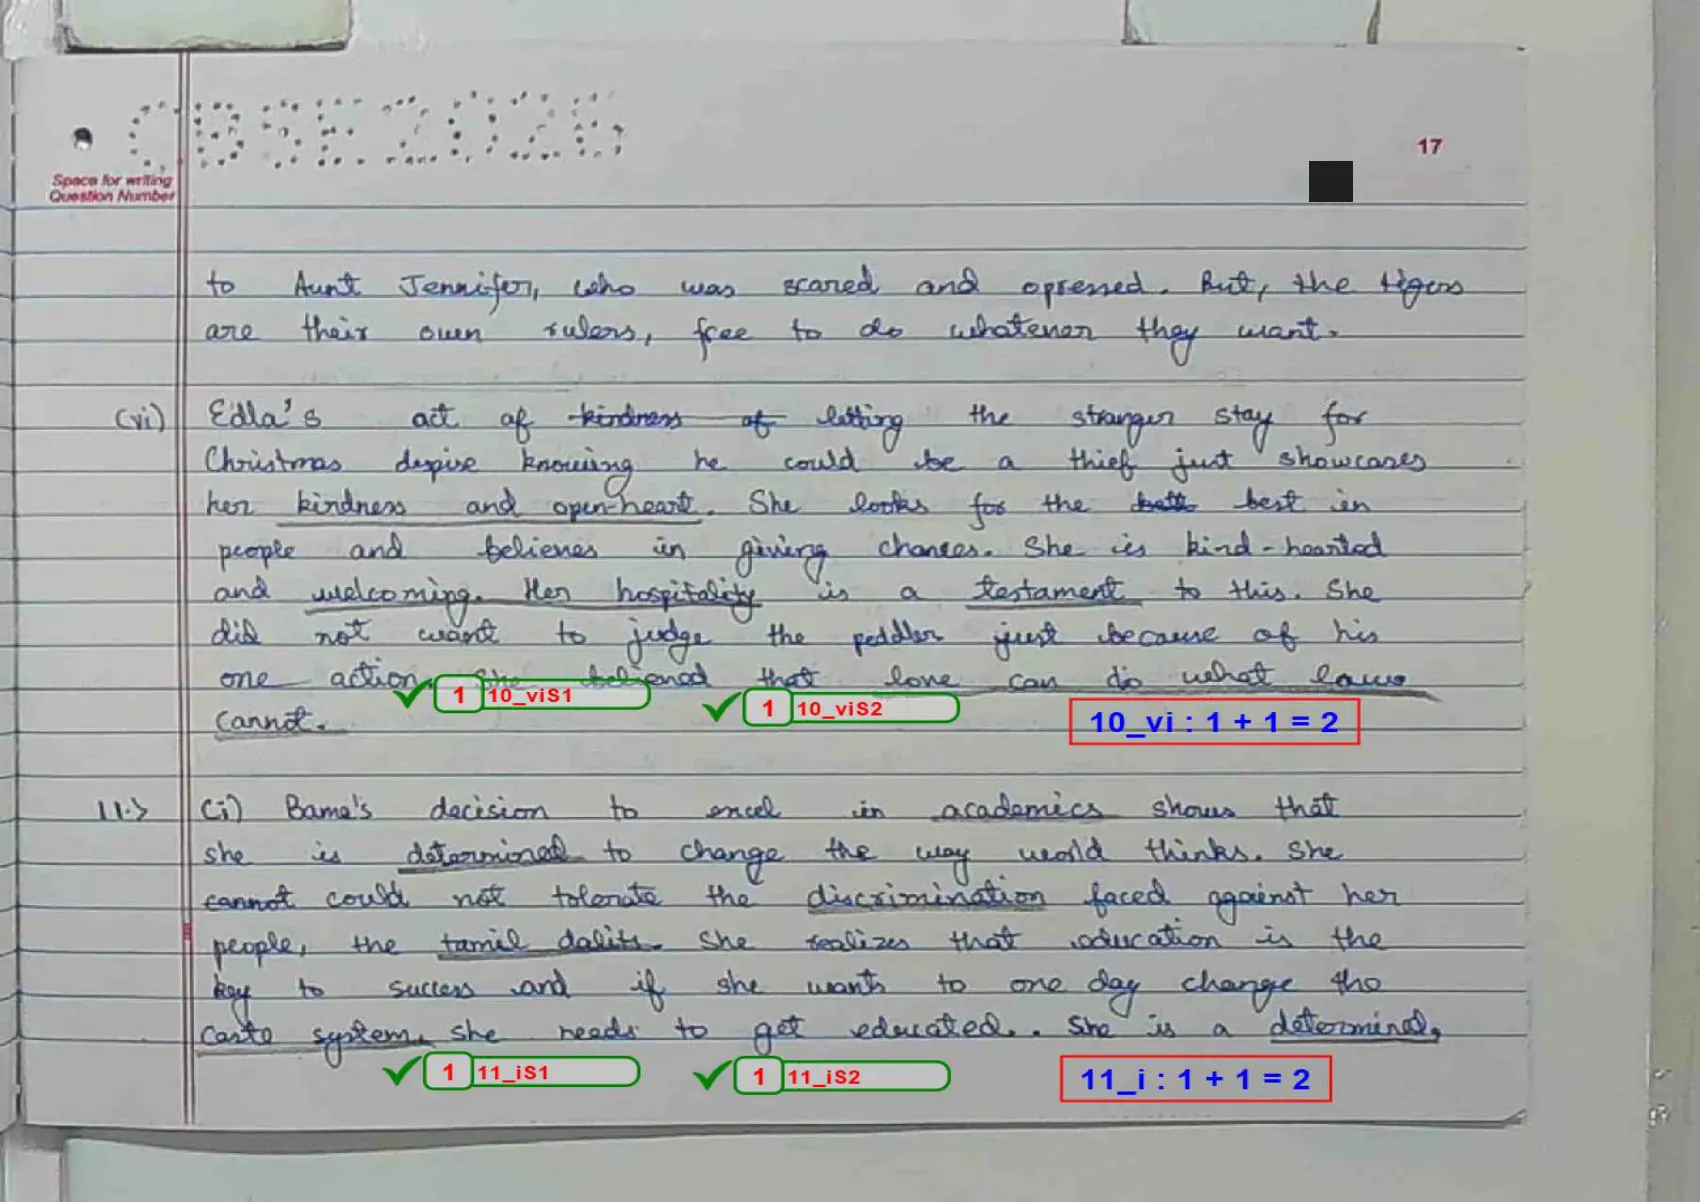 CBSE2026
17
Space for writing
Question Number
to Aunt Jennifer, who was scared and opressed. But, the tigers
are their own rulers, free to do whatever they want.
(vi) Edla's act of kindness of letting the stranger stay for
Christmas despise knowing he could be a thief just showcases
her kindness and open-heart. She looks for the best in
people and believes in giving chances. She is kind-hearted
and welcoming. Her hospitality is a testament to this. She
did not want to judge the peddler just because of his
one action. She believed that love can do what laws
cannot.
1 10_viS1 1 10_viS2 10_vi : 1 + 1 = 2
11.> (i) Bama's decision to excel in academics shows that
she is determined to change the way world thinks. She
cannot could not tolerate the discrimination faced against her
people, the tamil dalits. She realizes that education is the
key to success and if she wants to one day change the
caste system, she needs to get educated. She is a determined,
1 11_iS1 1 11_iS2 11_i : 1 + 1 = 2